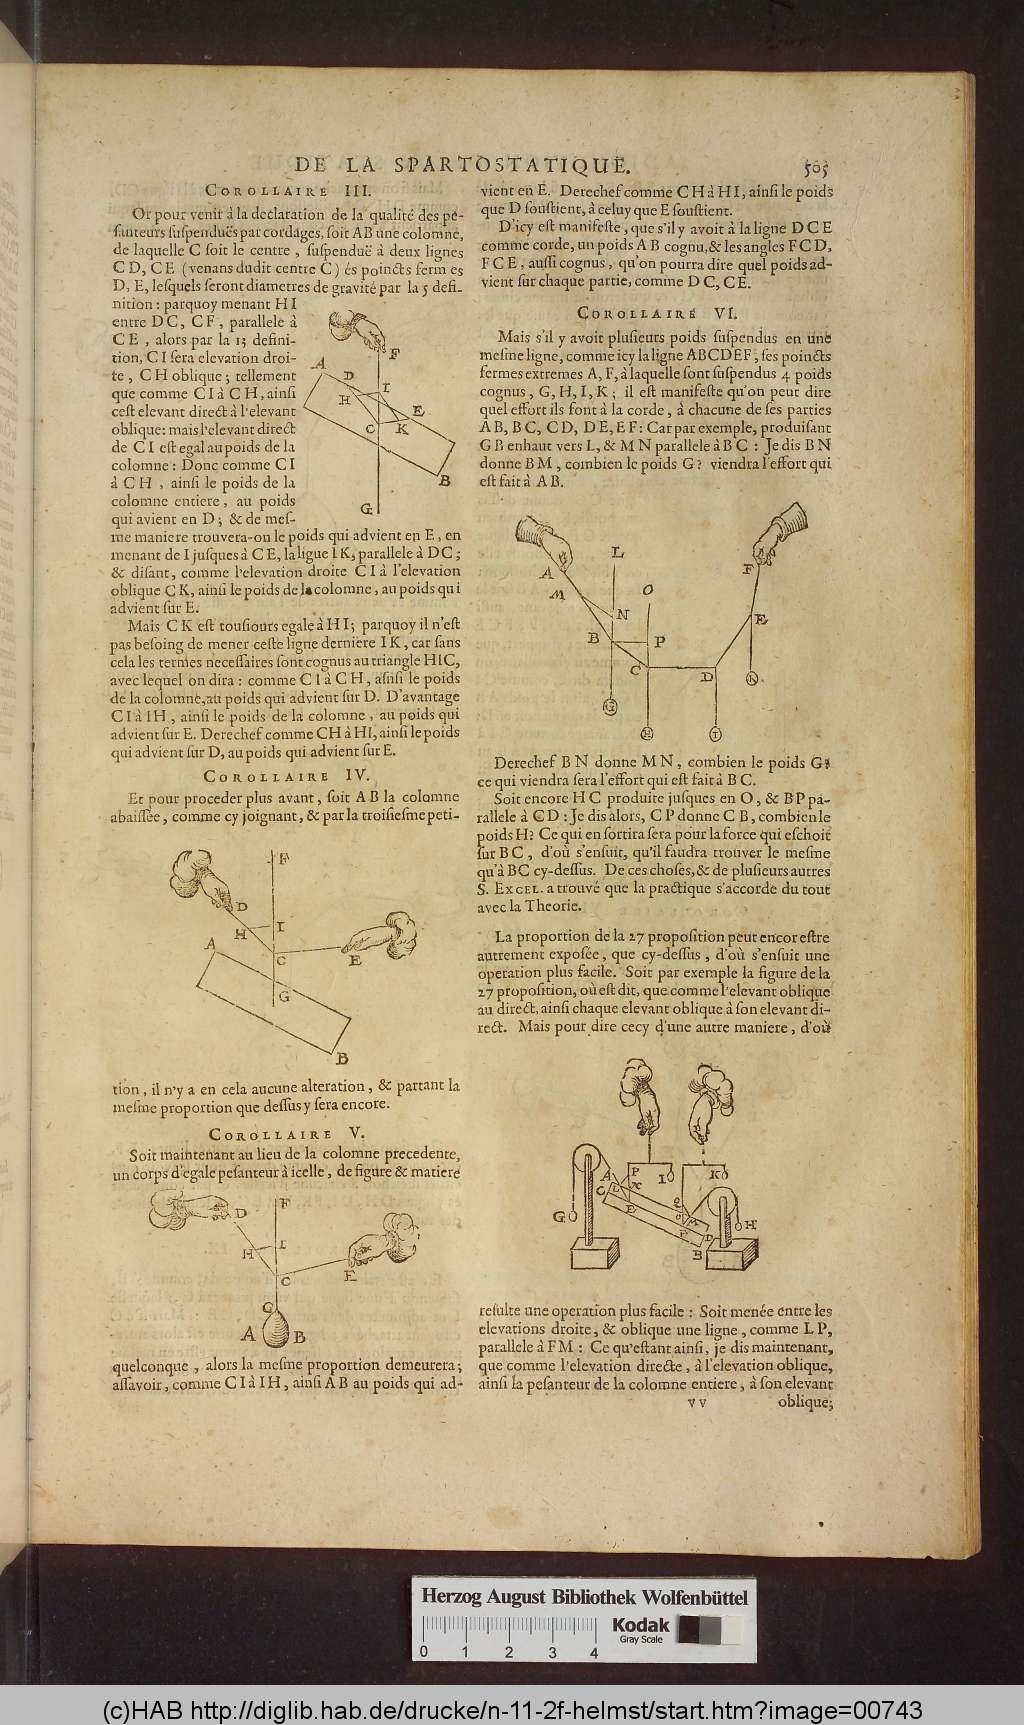 DE LA SPARTOSTATIQUE. 505
COROLLAIRE III.
Or pour venir à la declaration de la qualité des pe-
santeurs suspenduës par cordages, soit AB une colomne,
de laquelle C soit le centre, suspenduë à deux lignes
CD, CE (venans dudit centre C) és poincts fermes
D, E, lesquels seront diametres de gravité par la 5 defi-
nition: parquoy menant HI
entre DC, CF, parallele à
CE, alors par la 13 defini-
tion, CI sera elevation droi-
te, CH oblique; tellement
que comme CI à CH, ainsi
cest elevant direct à l'elevant
oblique: mais l'elevant direct
de CI est egal au poids de la
colomne: Donc comme CI
à CH, ainsi le poids de la
colomne entiere, au poids
qui avient en D; & de mes-
me maniere trouvera-on le poids qui advient en E, en
menant de I jusques à CE, la ligue IK, parallele à DC;
& disant, comme l'elevation droite CI à l'elevation
oblique CK, ainsi le poids de la colomne, au poids qui
advient sur E.
Mais CK est tousiours egale à HI; parquoy il n'est
pas besoing de mener ceste ligne derniere IK, car sans
cela les termes necessaires sont cognus au triangle HIC,
avec lequel on dira: comme CI à CH, ainsi le poids
de la colomne, au poids qui advient sur D. D'avantage
CI à IH, ainsi le poids de la colomne, au poids qui
advient sur E. Derechef comme CH à HI, ainsi le poids
qui advient sur D, au poids qui advient sur E.
COROLLAIRE IV.
Et pour proceder plus avant, soit AB la colomne
abaissée, comme cy joignant, & par la troisiesme peti-
tion, il n'y a en cela aucune alteration, & partant la
mesme proportion que dessus y sera encore.
COROLLAIRE V.
Soit maintenant au lieu de la colomne precedente,
un corps d'egale pesanteur à icelle, de figure & matiere
quelconque, alors la mesme proportion demeurera;
assavoir, comme CI à IH, ainsi AB au poids qui ad-
vient en E. Derechef comme CH à HI, ainsi le poids
que D soustient, à celuy que E soustient.
D'icy est manifeste, que s'il y avoit à la ligne DCE
comme corde, un poids AB cognu, & les angles FCD,
FCE, aussi cognus, qu'on pourra dire quel poids ad-
vient sur chaque partie, comme DC, CE.
COROLLAIRE VI.
Mais s'il y avoit plusieurs poids suspendus en une
mesme ligne, comme icy la ligne ABCDEF, ses poincts
fermes extremes A, F, à laquelle sont suspendus 4 poids
cognus, G, H, I, K; il est manifeste qu'on peut dire
quel effort ils font à la corde, à chacune de ses parties
AB, BC, CD, DE, EF: Car par exemple, produisant
GB enhaut vers L, & MN parallele à BC: Je dis BN
donne BM, combien le poids G? viendra l'effort qui
est fait à AB.
Derechef BN donne MN, combien le poids G?
ce qui viendra sera l'effort qui est fait à BC.
Soit encore HC produite jusques en O, & BP pa-
rallele à CD: Je dis alors, CP donne CB, combien le
poids H? Ce qui en sortira sera pour la force qui eschoit
sur BC, d'où s'ensuit, qu'il faudra trouver le mesme
qu'à BC cy-dessus. De ces choses, & de plusieurs autres
S. EXCEL. a trouvé que la practique s'accorde du tout
avec la Theorie.
La proportion de la 27 proposition peut encor estre
autrement exposée, que cy-dessus, d'où s'ensuit une
operation plus facile. Soit par exemple la figure de la
27 proposition, où est dit, que comme l'elevant oblique
au direct, ainsi chaque elevant oblique à son elevant di-
rect. Mais pour dire cecy d'une autre maniere, d'où
resulte une operation plus facile: Soit menée entre les
elevations droite, & oblique une ligne, comme LP,
parallele à FM: Ce qu'estant ainsi, je dis maintenant,
que comme l'elevation directe, à l'elevation oblique,
ainsi la pesanteur de la colomne entiere, à son elevant
vv oblique;
Herzog August Bibliothek Wolfenbüttel
0 1 2 3 4
Kodak
Gray Scale
(c)HAB http://diglib.hab.de/drucke/n-11-2f-helmst/start.htm?image=00743